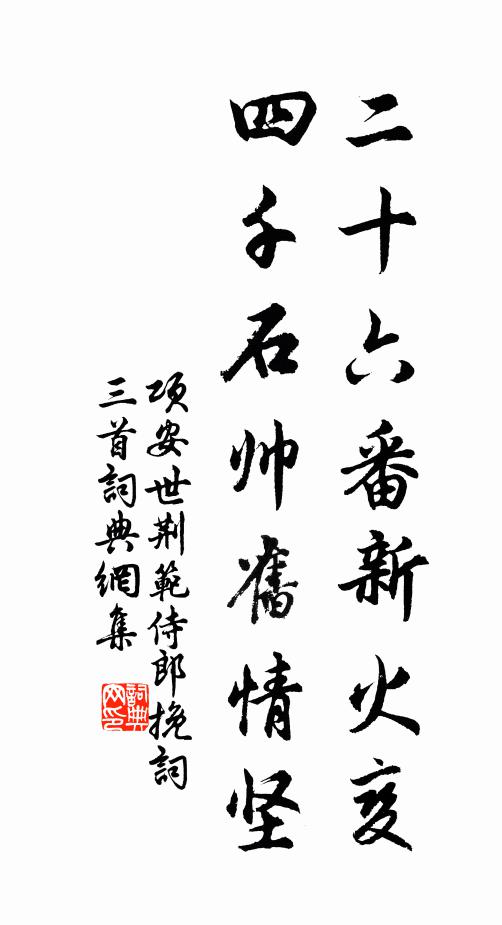 二十六番新火变
四千石帅舊情坚
项安世荆範侍郎挽詞
三首詞典網集
詞典网印